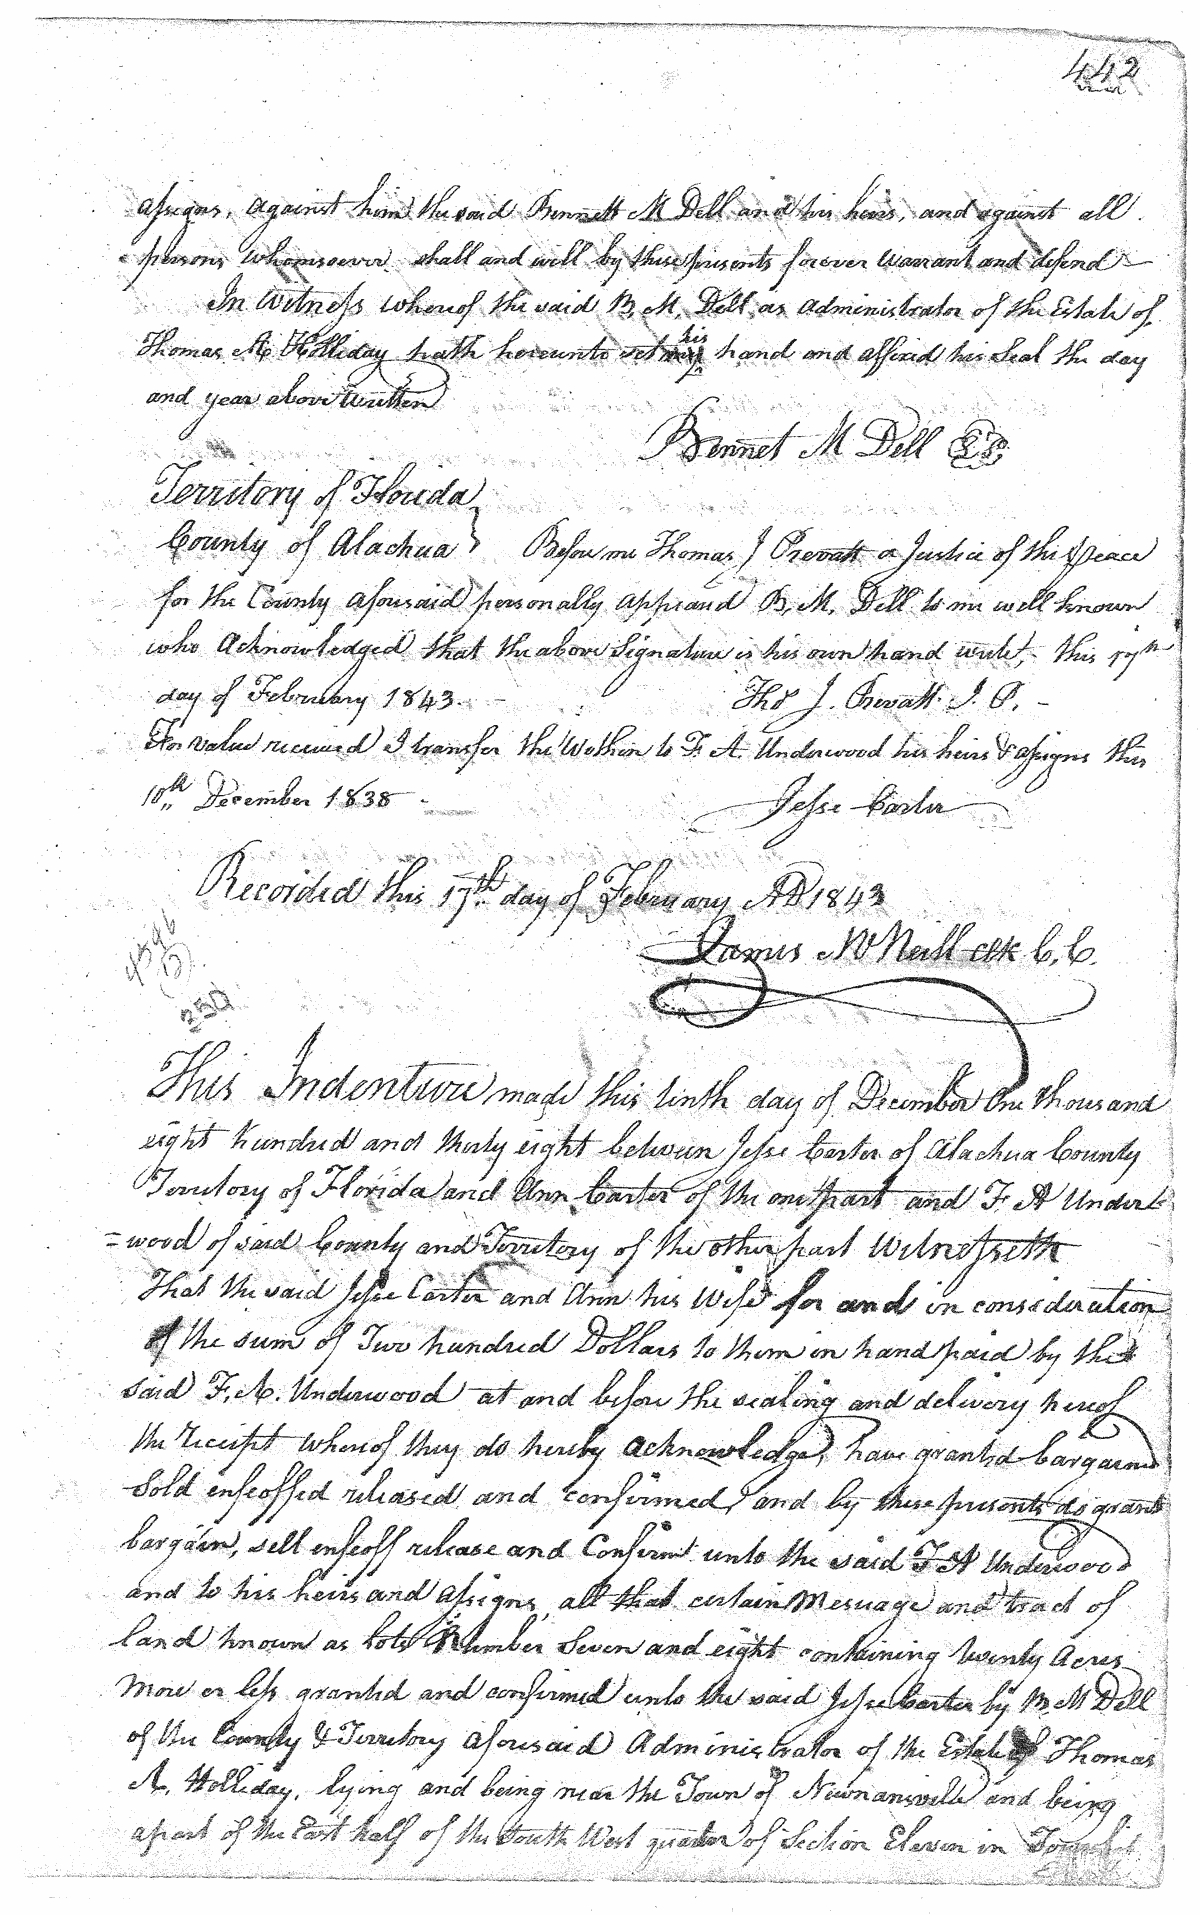 442
assigns, against him the said Bennett M Dell and his heirs, and against all
persons whomsoever shall and will by these presents forever warrant and defend
In Witness whereof the said B. M. Dell, as administrator of the Estate of
Thomas A Holliday hath hereunto set his hand and affixed his Seal the day
and year above written
Bennet M Dell
Territory of Florida
County of Alachua } Before me Thomas J Prevatt a Justice of the peace
for the County aforesaid personally appeared B. M. Dell to me well known
who Acknowledged that the above Signature is his own hand write, this 17th
day of February 1843. Thos J. Prevatt J. P.
For value received I transfer the Within to F. A. Underwood his heirs & assigns this
10th December 1838 - Jesse Carter
Recorded this 17th day of February AD 1843
James McNeill clk C. C.
This Indenture made this tenth day of December One thousand
eight hundred and thirty eight between Jesse Carter of Alachua County
Territory of Florida and Ann Carter of the one part and F. A Under
=wood of said County and Territory of the other part Witnesseth
That the said Jesse Carter and Ann his Wife for and in consideration
of the sum of Two hundred Dollars to them in hand paid by the
said F. A. Underwood at and before the sealing and delivery hereof
the receipt whereof they do hereby acknowledge, have granted bargained
Sold enfeoffed released and confirmed, and by these presents do grant
bargain, sell enfeoff release and Confirm unto the said F A Underwood
and to his heirs and assigns, all that certain Mesuage and tract of
land known as lots Number Seven and eight containing twenty Acres
More or less granted and confirmed unto the said Jesse Carter by B. M Dell
of the County & Territory aforesaid Administrator of the Estate of Thomas
A. Holliday, lying and being near the Town of Newnansville and being
apart of the East half of the South West quarter of Section Eleven in